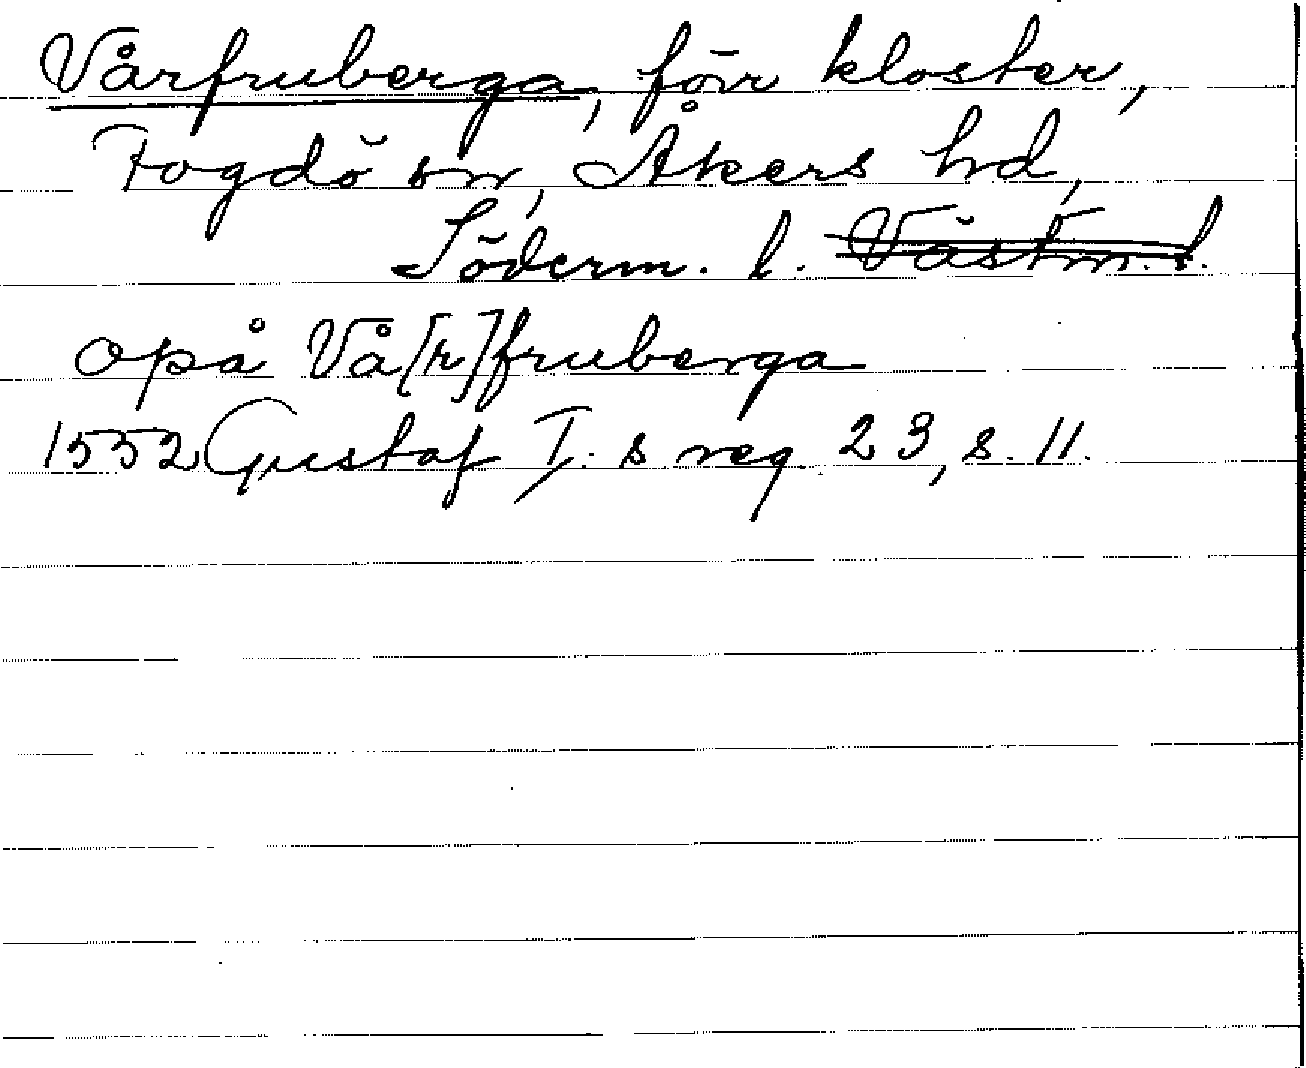 Vårfruberga, förr kloster,
Fogdö sn, Åkers hd,
Söderm. l. Västm. l.
opå Vå[r]fruberga
1552 Gustaf I. s reg. 23, s. 11.